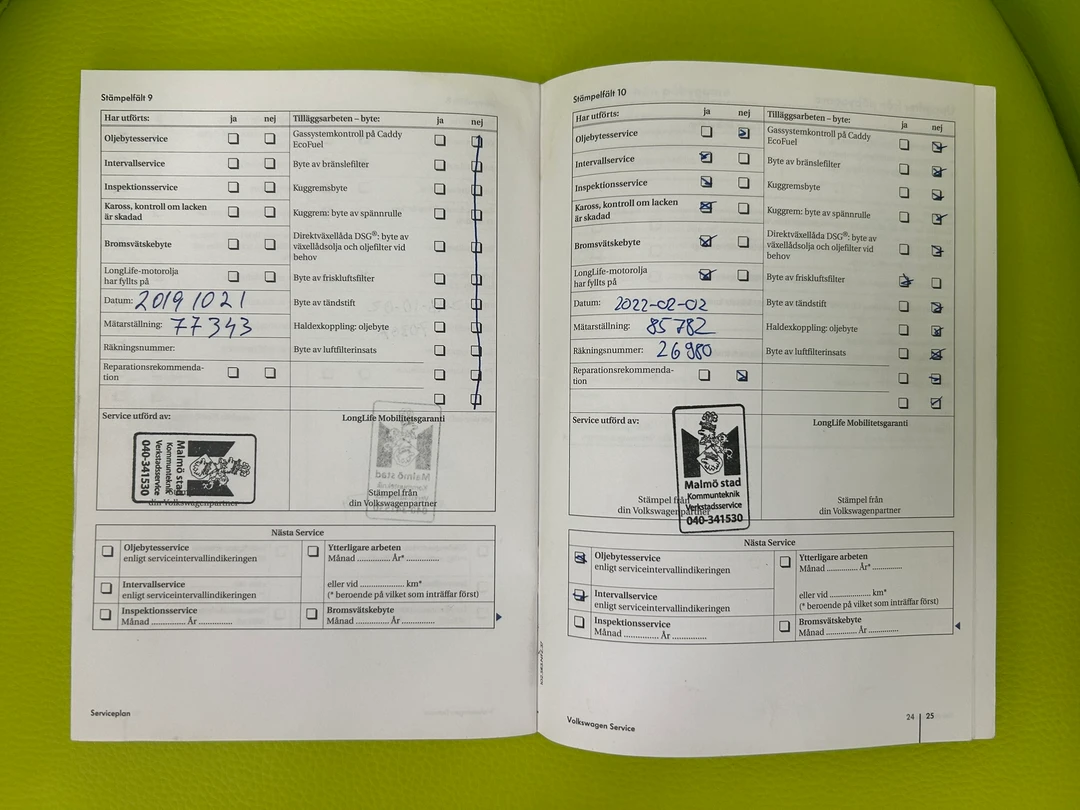 Stämpelfält 9
Har utförts: ja nej Tilläggsarbeten – byte: ja nej
Oljebytesservice Gassystemkontroll på Caddy
EcoFuel
Intervallservice Byte av bränslefilter
Inspektionsservice Kuggremsbyte
Kaross, kontroll om lacken
är skadad Kuggrem: byte av spännrulle
Bromsvätskebyte Direktväxellåda DSG®: byte av
växellådsolja och oljefilter vid
behov
LongLife-motorolja
har fyllts på Byte av friskluftsfilter
Datum: 2019 10 21 Byte av tändstift
Mätarställning: 77343 Haldexkoppling: oljebyte
Räkningsnummer: Byte av luftfilterinsats
Reparationsrekommenda-
tion
Service utförd av: LongLife Mobilitetsgaranti
Malmö stad
Kommunteknik
Verkstadsservice
040-341530
din Volkswagenpartner
Malmö stad
Kommunteknik
Verkstadsservice
040-341530
Stämpel från
din Volkswagenpartner
Nästa Service
Oljebytesservice
enligt serviceintervallindikeringen
Ytterligare arbeten
Månad .............. År* ...............
Intervallservice
enligt serviceintervallindikeringen
eller vid .................... km*
(* beroende på vilket som inträffar först)
Inspektionsservice
Månad .............. År ...............
Bromsvätskebyte
Månad .............. År ...............
Serviceplan
Stämpelfält 10
Har utförts: ja nej Tilläggsarbeten – byte: ja nej
Oljebytesservice Gassystemkontroll på Caddy
EcoFuel
Intervallservice Byte av bränslefilter
Inspektionsservice Kuggremsbyte
Kaross, kontroll om lacken
är skadad Kuggrem: byte av spännrulle
Bromsvätskebyte Direktväxellåda DSG®: byte av
växellådsolja och oljefilter vid
behov
LongLife-motorolja
har fyllts på Byte av friskluftsfilter
Datum: 2022-02-02 Byte av tändstift
Mätarställning: 85782 Haldexkoppling: oljebyte
Räkningsnummer: 26980 Byte av luftfilterinsats
Reparationsrekommenda-
tion
Service utförd av: LongLife Mobilitetsgaranti
Malmö stad
Kommunteknik
Verkstadsservice
040-341530
Stämpel från
din Volkswagenpartner
Stämpel från
din Volkswagenpartner
Nästa Service
Oljebytesservice
enligt serviceintervallindikeringen
Ytterligare arbeten
Månad .............. År* ...............
Intervallservice
enligt serviceintervallindikeringen
eller vid .................... km*
(* beroende på vilket som inträffar först)
Inspektionsservice
Månad .............. År ...............
Bromsvätskebyte
Månad .............. År ...............
Volkswagen Service 24 25